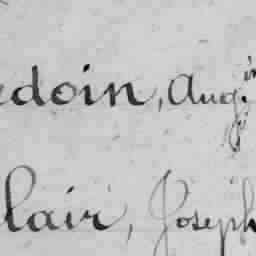 edoin, Aug.in
lair, Joseph